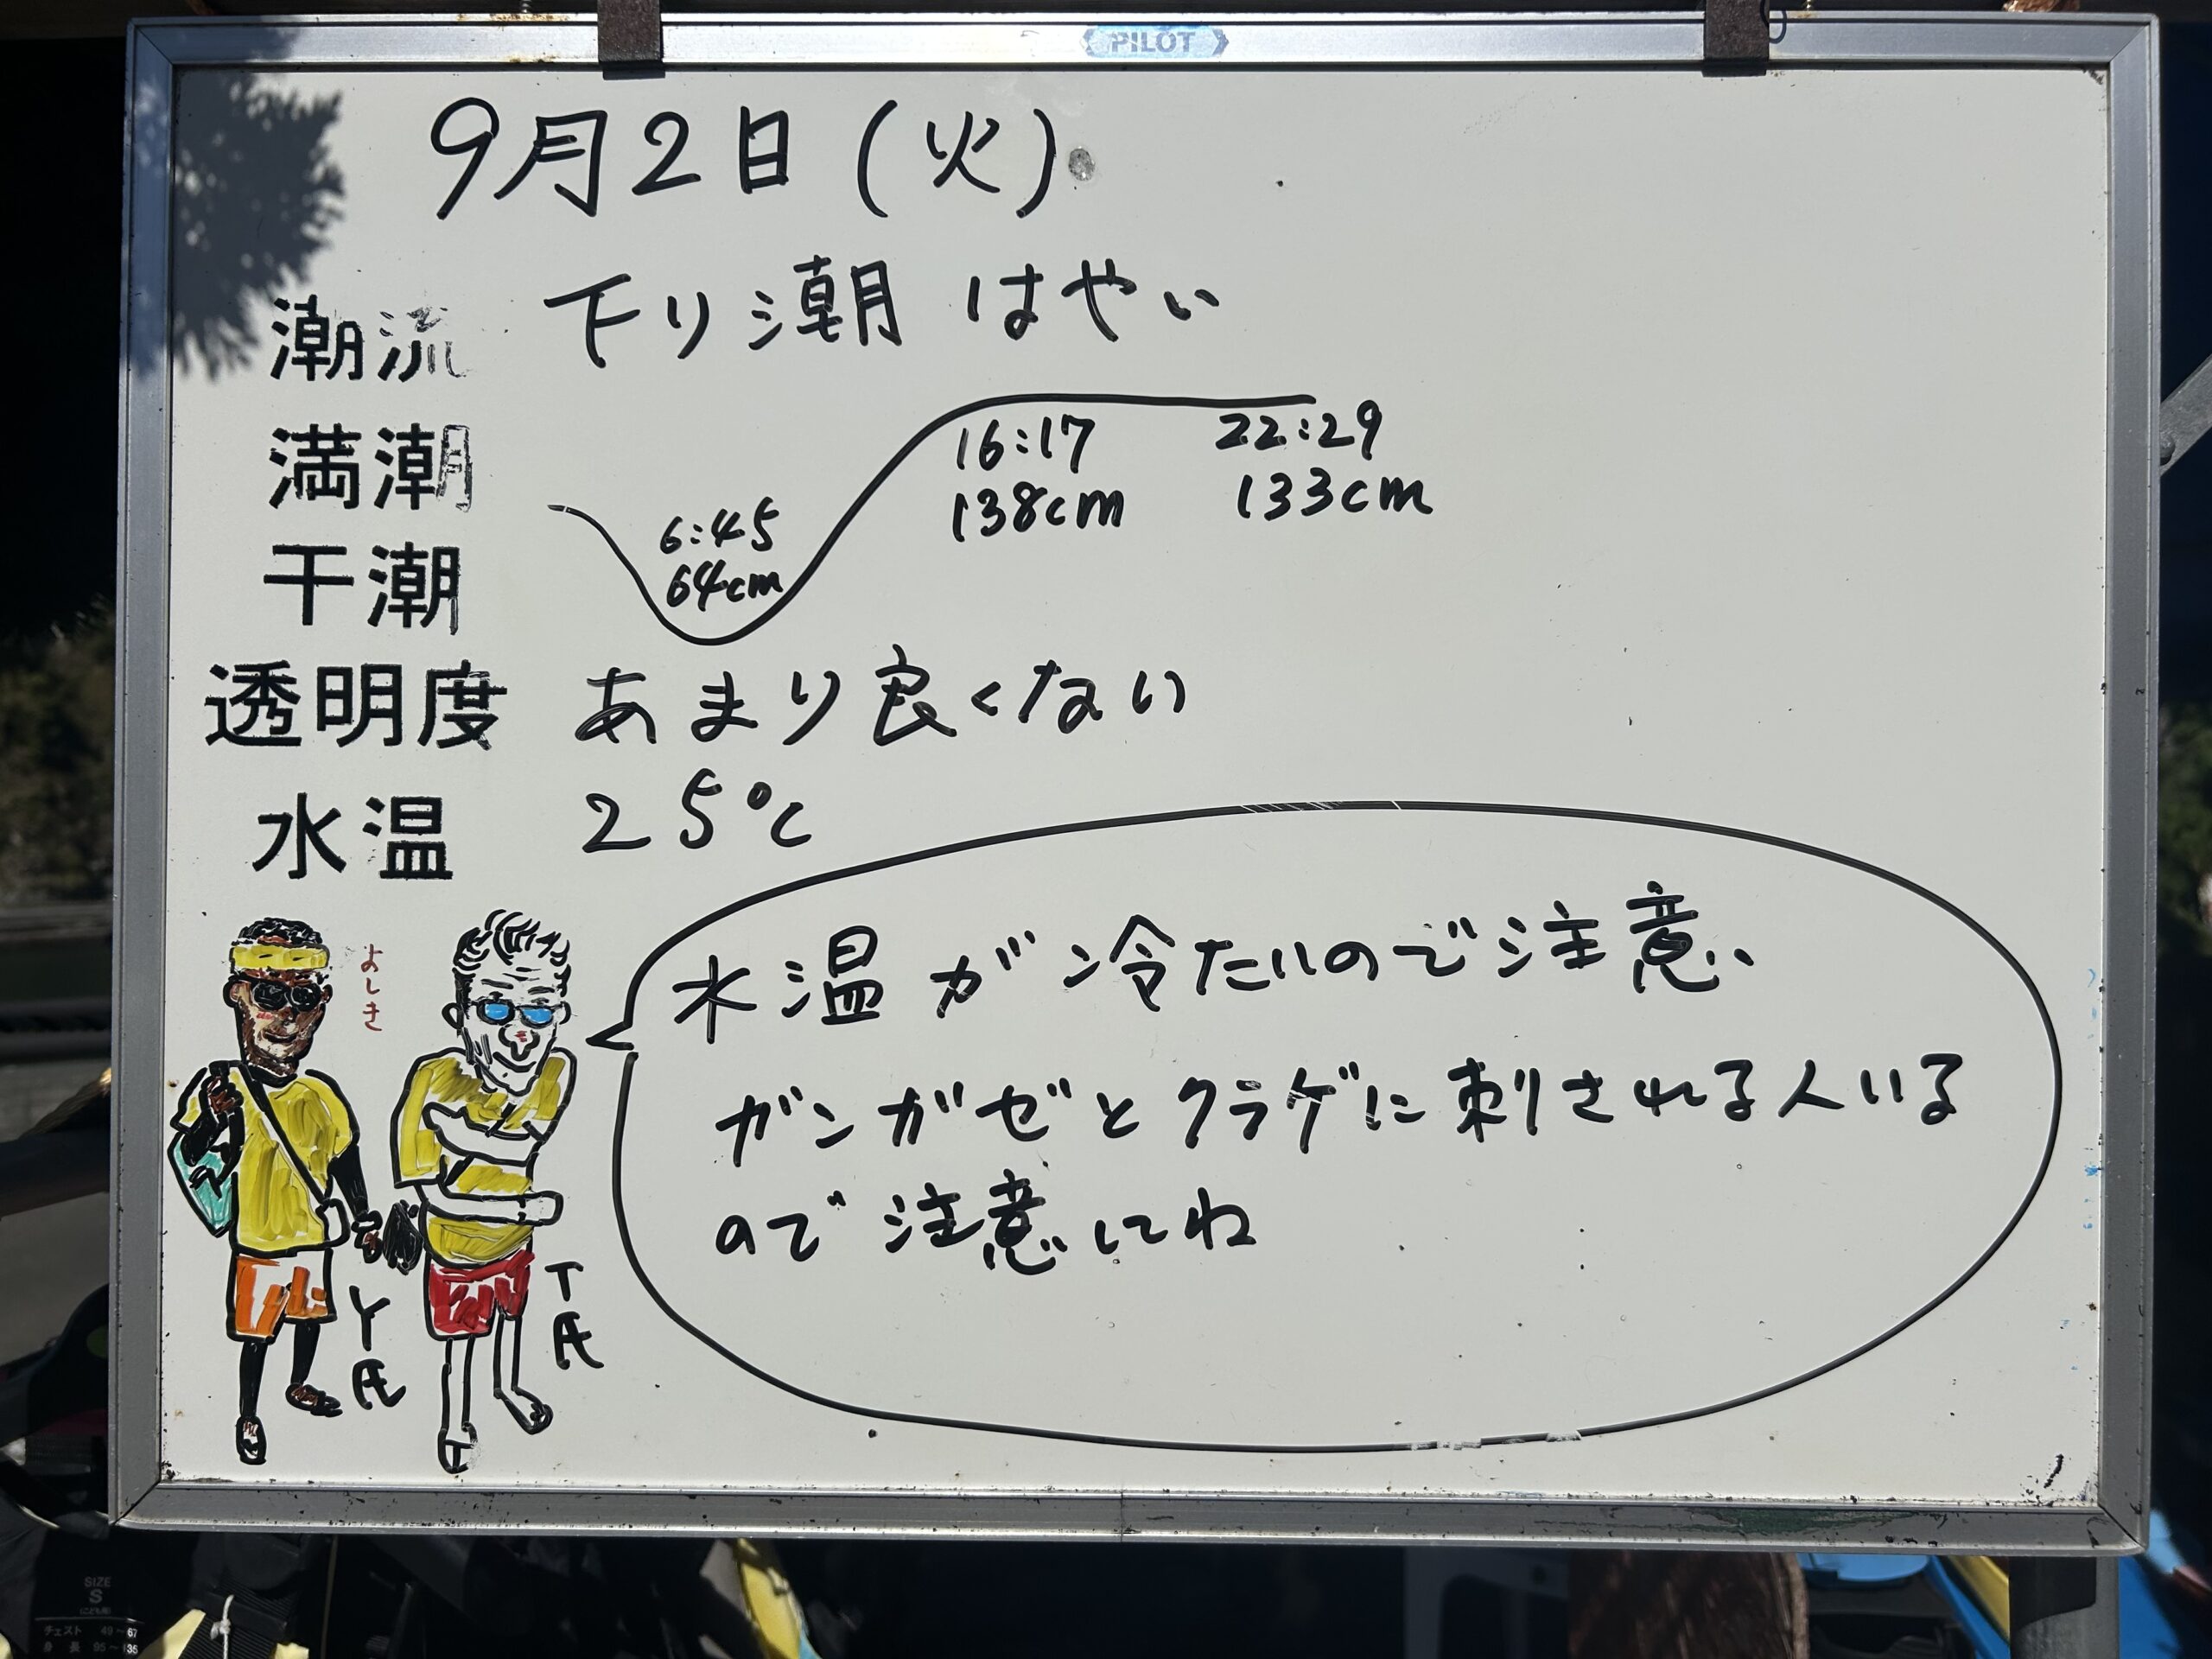 PILOT
9月2日(火)
潮流 下り潮 はやい
満潮
16:17 22:29
138cm 133cm
干潮
6:45
64cm
透明度 あまり良くない
水温 25℃
水温が冷たいので注意、
ガンガゼとクラゲに刺される人いる
ので注意してね
よしき
Y氏
T氏
SIZE
S
チェスト 49~67
身長 95~135